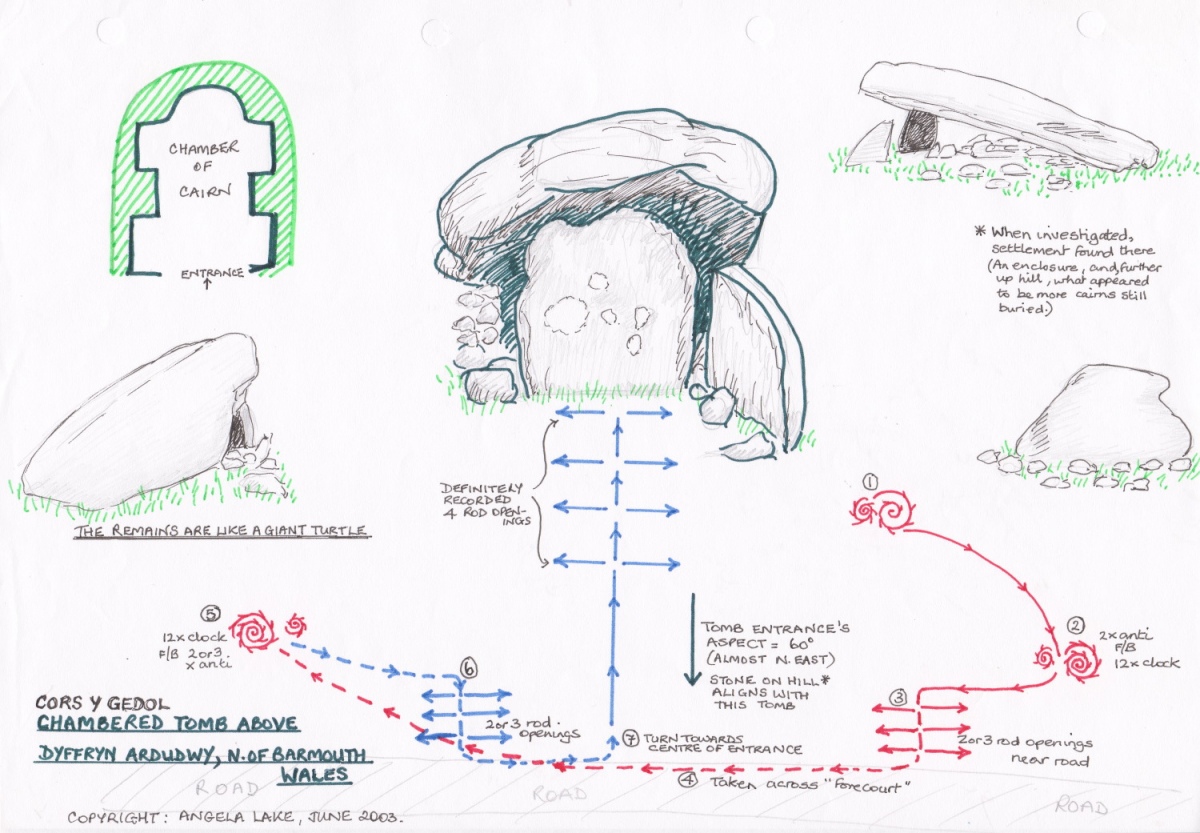 CHAMBER
OF
CAIRN
ENTRANCE
* When investigated,
settlement found there
(An enclosure, and, further
up hill, what appeared
to be more cairns still
buried.)
THE REMAINS ARE LIKE A GIANT TURTLE
DEFINITELY
RECORDED
4 ROD OPEN-
INGS
1
2
2x anti
F/B
12x clock
3
2or3 rod openings
near road
TOMB ENTRANCE'S
ASPECT = 60°
(ALMOST N.EAST)
STONE ON HILL*
ALIGNS WITH
THIS TOMB
4 Taken across "forecourt"
5
12x clock
F/B 2or3.
x anti
6
2or3 rod.
openings
7 TURN TOWARDS
CENTRE OF ENTRANCE
CORS Y GEDOL
CHAMBERED TOMB ABOVE
DYFFRYN ARDUDWY, N.OF BARMOUTH
WALES
ROAD
ROAD
ROAD
COPYRIGHT: ANGELA LAKE, JUNE 2003.